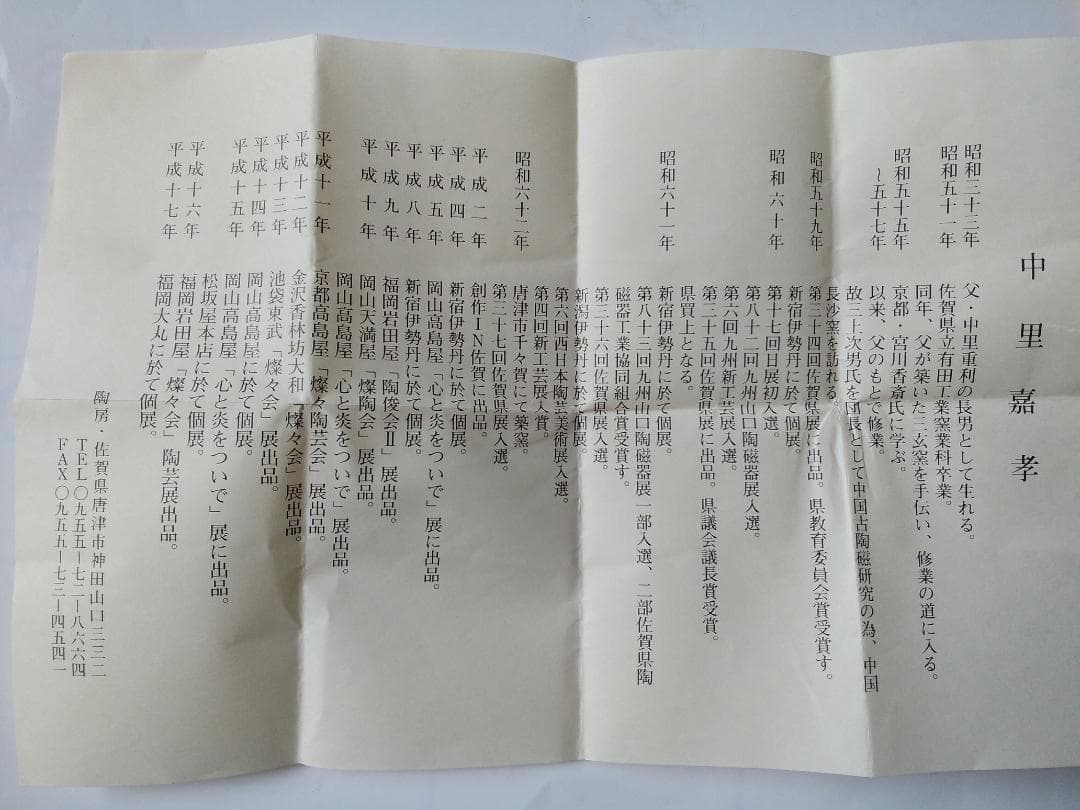 中里嘉孝
昭和三十三年 父・中里重利の長男として生れる。
昭和五十一年 佐賀県立有田工業窯業科卒業。
同年、父が築いた三玄窯を手伝い、修業の道に入る。
昭和五十五年 京都・宮川香斎氏に学ぶ。
～五十七年 以来、父のもとで修業。
故三上次男氏を団長として中国古陶磁研究の為、中国
長沙窯を訪れる。
昭和五十九年 第三十四回佐賀県展に出品。県教育委員会賞受賞す。
新宿伊勢丹に於て個展。
昭和六十年 第十七回日展初入選。
第八十二回九州山口陶磁器展入選。
第六回九州新工芸展入選。
第二十五回佐賀県展に出品。県議会議長賞受賞。
県買上となる。
昭和六十一年 新宿伊勢丹に於て個展。
第八十三回九州山口陶磁器展一部入選、二部佐賀県陶
磁器工業協同組合賞受賞す。
第三十六回佐賀県展入選。
新潟伊勢丹に於て個展。
第六回西日本陶芸美術展入選。
第四回新工芸展入賞。
昭和六十二年 唐津市千々賀にて築窯。
第三十七回佐賀県展入選。
平成二年 創作ＩＮ佐賀に出品。
平成四年 新宿伊勢丹に於て個展。
平成五年 岡山高島屋「心と炎をついで」展に出品。
平成八年 新宿伊勢丹に於て個展。
平成九年 福岡岩田屋「陶俊会Ⅱ」展出品。
平成十年 岡山天満屋「燦陶会」展出品。
岡山高島屋「心と炎をついで」展出品。
平成十一年 京都高島屋「燦々陶芸会」展出品。
平成十二年 金沢香林坊大和「燦々会」展出品。
平成十三年 池袋東武「燦々会」展出品。
平成十四年 岡山高島屋に於て個展。
平成十五年 岡山高島屋「心と炎をついで」展に出品。
松坂屋本店に於て個展。
平成十六年 福岡岩田屋「燦々会」陶芸展出品。
平成十七年 福岡大丸に於て個展。
陶房・佐賀県唐津市神田山口三三二
ＴＥＬ〇九五五－七二－八六六四
ＦＡＸ〇九五五－七三－四五四一